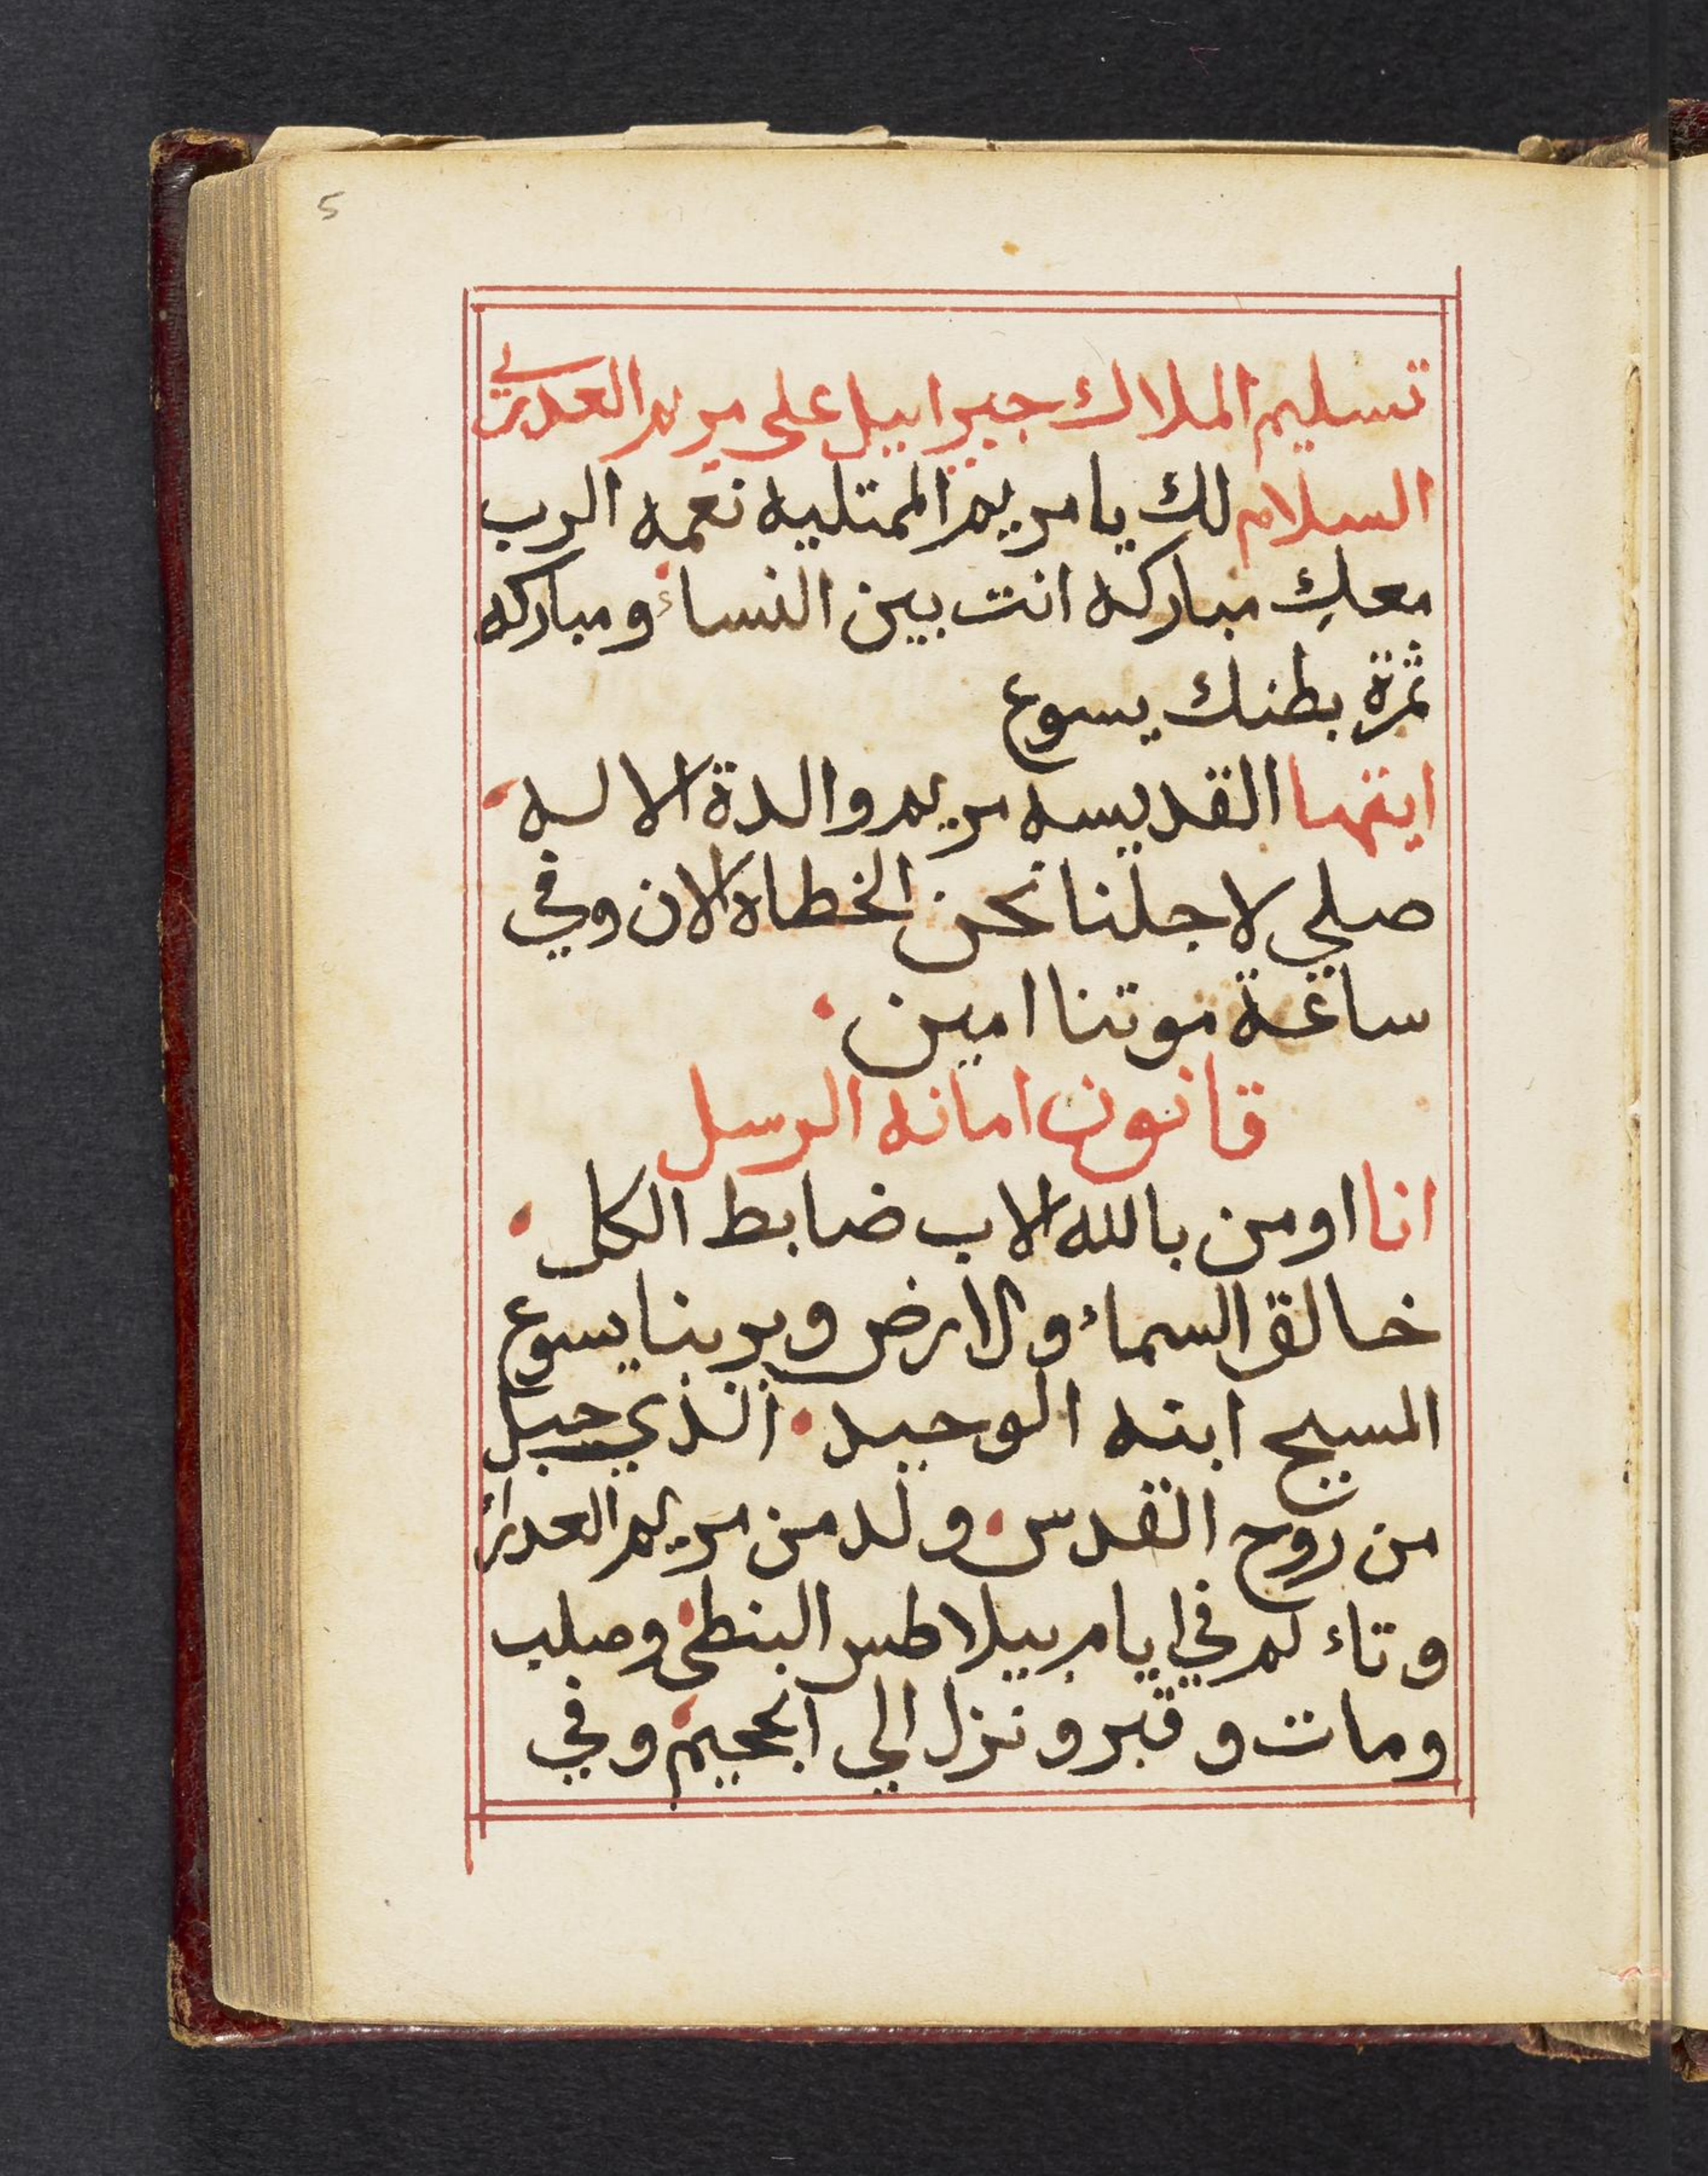 5
تسليم الملاك جبراييل على مريم العدرى
السلام لك يا مريم الممتليه نعمه الرب
معكِ مباركه انت بين النساء ومباركه
ثمرة بطنك يسوع
ايتها القديسه مريم والدة الاله
صلي لاجلنا نحن الخطاه الان وفي
ساعة موتنا امين
قانون امانه الرسل
انا اومن بالله الاب ضابط الكل
خالق السماء والارض وبربنا يسوع
المسيح ابنه الوحيد الذي حبل
من روح القدس ولد من مريم العدرا
وتاءلم في ايام بيلاطس البنطى وصلب
ومات وقبر ونزل الي الجحيم وفي